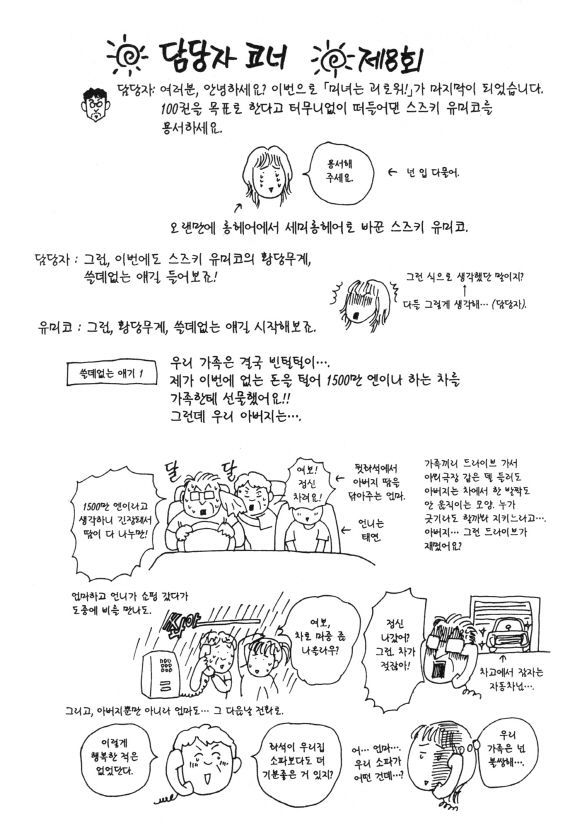 담당자 코너 제8회
담당자: 여러분, 안녕하세요? 이번으로 「미녀는 괴로워!」가 마지막이 되었습니다.
100권을 목표로 한다고 터무니없이 떠들어댄 스즈키 유미코를
용서하세요.
용서해
주세요.
← 넌 입 다물어.
오랜만에 롱헤어에서 세미롱헤어로 바꾼 스즈키 유미코.
담당자 : 그런, 이번에도 스즈키 유미코의 황당무계,
쓸데없는 얘길 들어보죠!
그런 식으로 생각했단 말이지?
다들 그렇게 생각해… (담당자).
유미코 : 그런, 황당무계, 쓸데없는 얘길 시작해보죠.
쓸데없는 얘기 1
우리 가족은 결국 빈털털이….
제가 이번에 없는 돈을 털어 1500만 엔이나 하는 차를
가족한테 선물했어요!!
그런데 우리 아버지는….
1500만 엔이라고
생각하니 긴장돼서
땀이 다 나누만!
달
달
여보!
정신
차려요!
← 뒷좌석에서
아버지 땀을
닦아주는 엄마.
← 언니는
태연.
가족끼리 드라이브 가서
야외극장 같은 델 들러도
아버지는 차에서 한 발짝도
안 움직이는 모양. 누가
긁기라도 할까봐 지키느라고….
아버지… 그런 드라이브가
재밌어요?
엄마하고 언니가 쇼핑 갔다가
도중에 비를 만나도.
쏴아
여보,
차로 마중 좀
나올라우?
정신
나갔어?
그런, 차가
젖잖아!
차고에서 잠자는
자동차님….
그리고, 아버지뿐만 아니라 엄마도… 그 다음날 전화로.
이렇게
행복한 적은
없었단다.
좌석이 우리집
소파보다도 더
기분좋은 거 있지?
어… 엄마…
우리 소파가
어떤 건데…?
우리
가족은 넘
불쌍해….